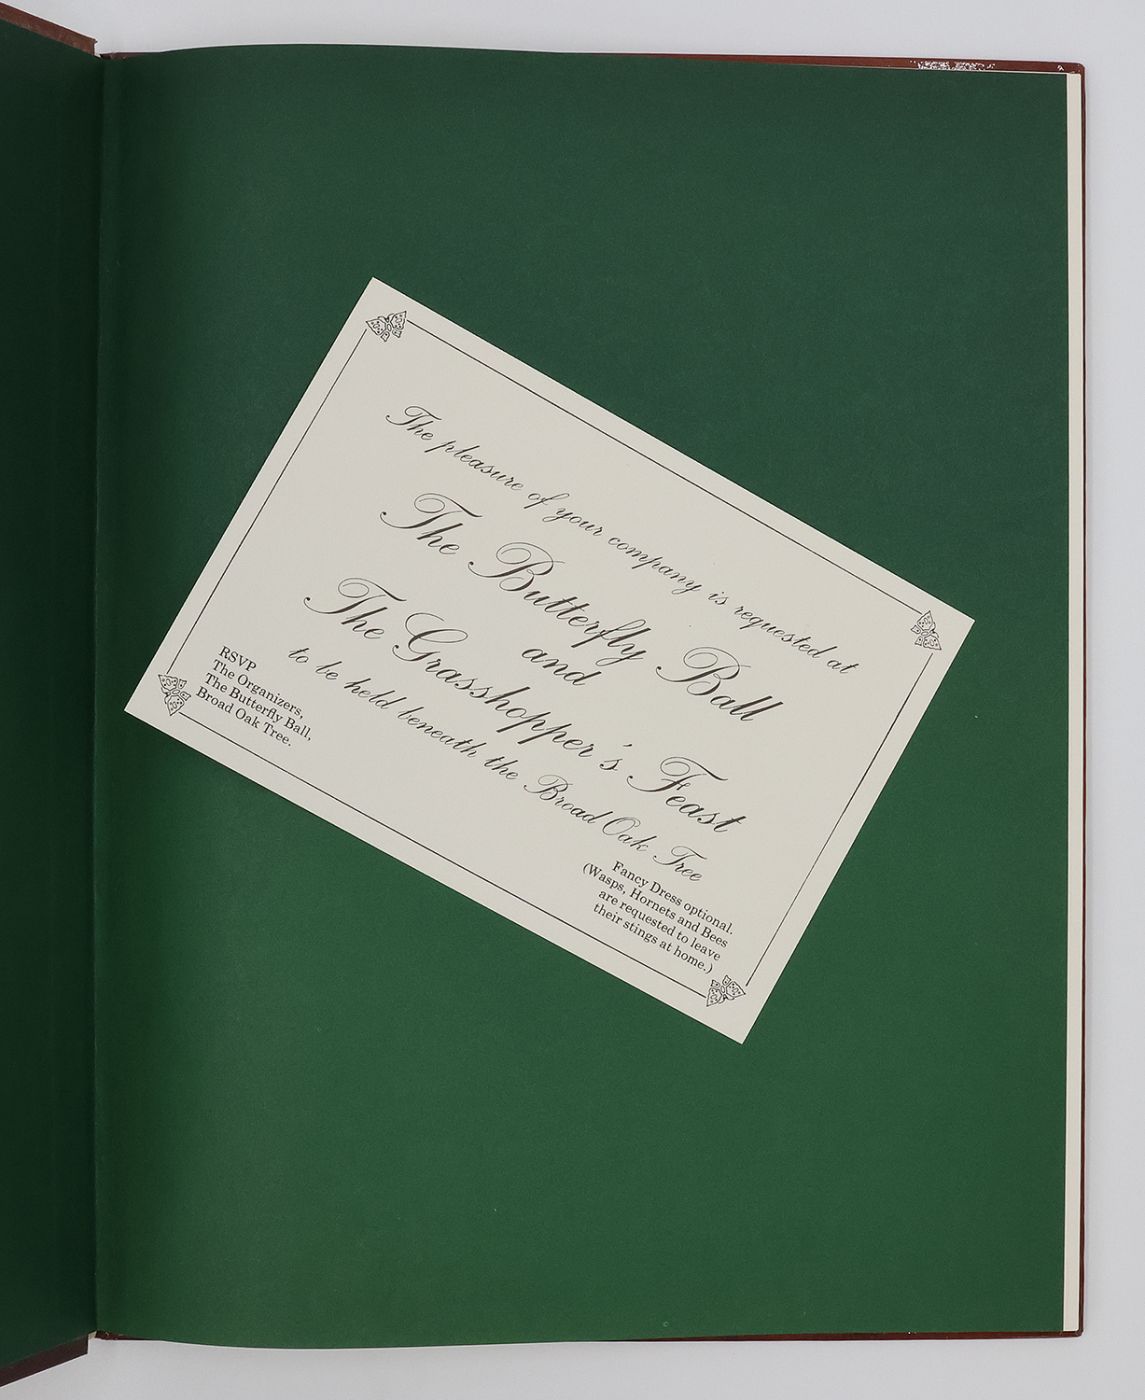 The pleasure of your company is requested at
The Butterfly Ball
and
The Grasshopper's Feast
to be held beneath the Broad Oak Tree
RSVP
The Organizers,
The Butterfly Ball,
Broad Oak Tree.
Fancy Dress optional.
(Wasps, Hornets and Bees
are requested to leave
their stings at home.)